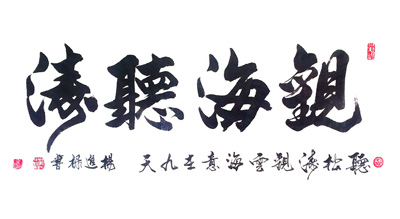 觀海聽濤
聽松濤觀雲海意在九天 楊進祿書